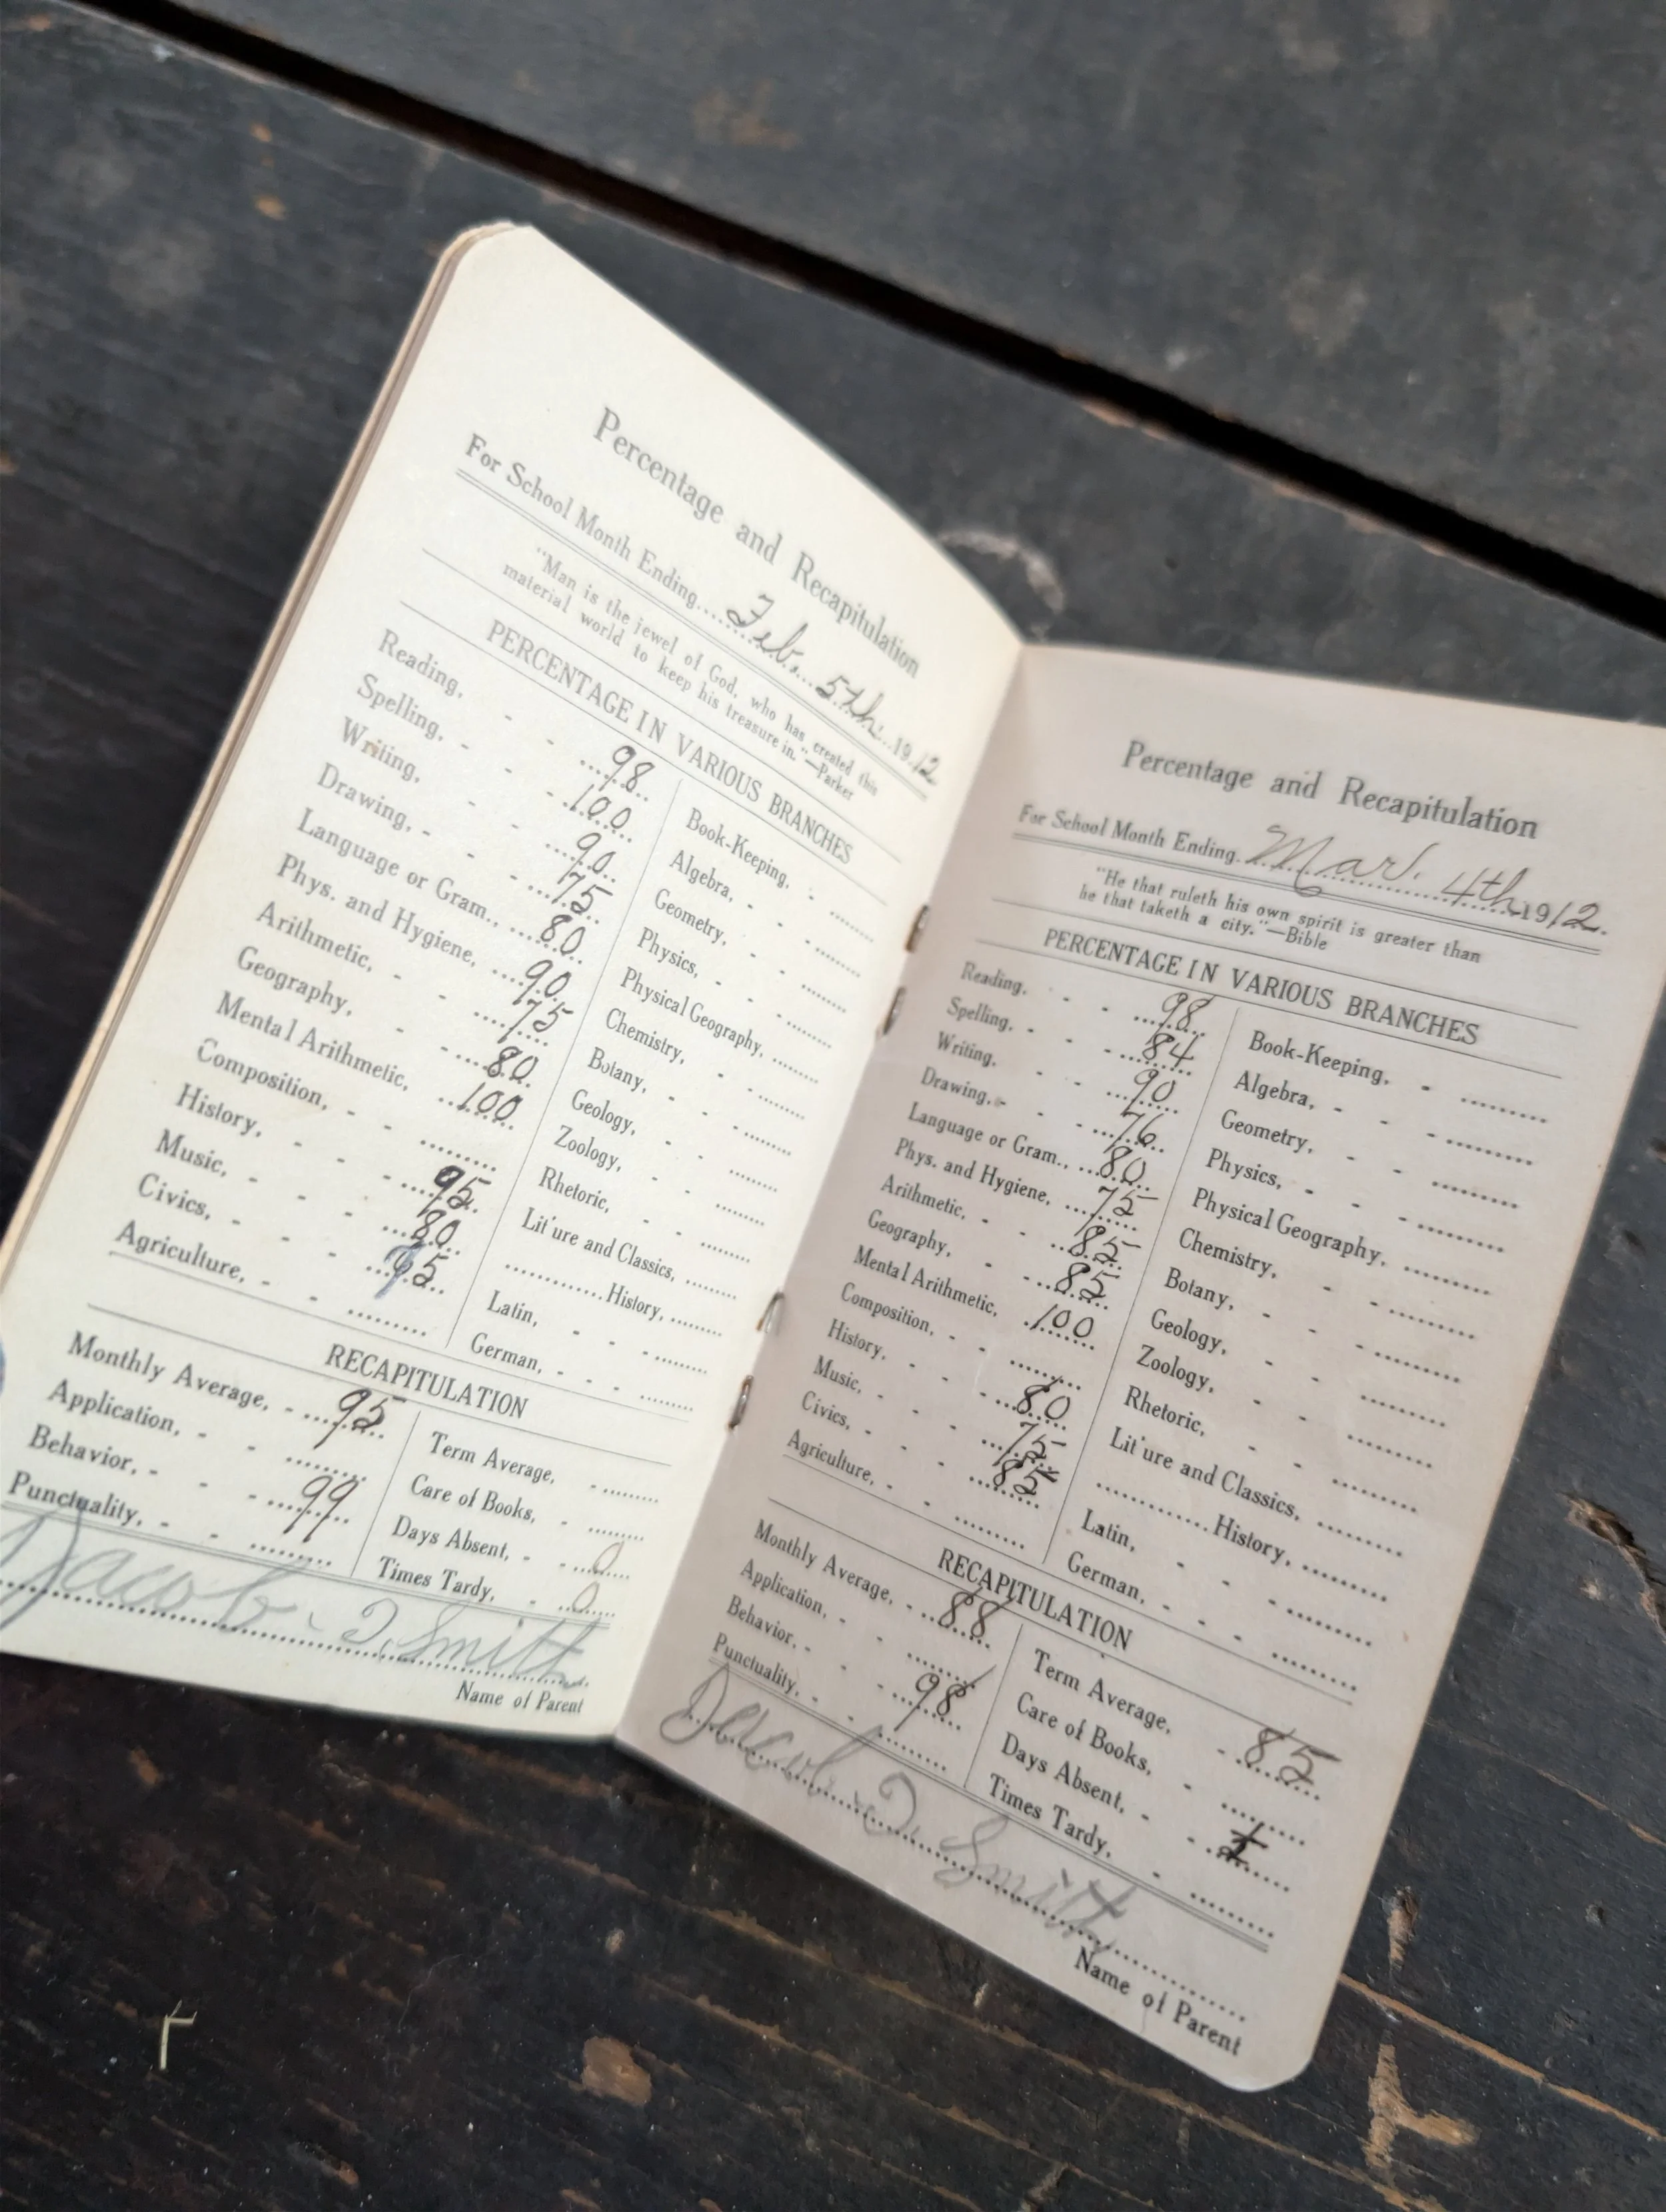 Percentage and Recapitulation
For School Month Ending Feb. 5th 1912
"Man is the jewel of God, who has created this
material world to keep his treasure in."—Parker
PERCENTAGE IN VARIOUS BRANCHES
Reading, 98
Spelling, 100
Writing, 90
Drawing, 75
Language or Gram., 80
Phys. and Hygiene, 90
Arithmetic, 75
Geography, 80
Mental Arithmetic, 100
Composition,
History, 95
Music, 80
Civics, 95
Agriculture,
Book-Keeping,
Algebra,
Geometry,
Physics,
Physical Geography,
Chemistry,
Botany,
Geology,
Zoology,
Rhetoric,
Lit'ure and Classics,
History,
Latin,
German,
RECAPITULATION
Monthly Average, 95
Application,
Behavior, 99
Punctuality,
Term Average,
Care of Books,
Days Absent, 0
Times Tardy, 0
Jacob Smith
Name of Parent
Percentage and Recapitulation
For School Month Ending Mar. 4th 1912.
"He that ruleth his own spirit is greater than
he that taketh a city."—Bible
PERCENTAGE IN VARIOUS BRANCHES
Reading, 98
Spelling, 84
Writing, 90
Drawing, 76
Language or Gram., 80
Phys. and Hygiene, 75
Arithmetic, 85
Geography, 85
Mental Arithmetic, 100
Composition,
History, 80
Music, 75
Civics, 85
Agriculture,
Book-Keeping,
Algebra,
Geometry,
Physics,
Physical Geography,
Chemistry,
Botany,
Geology,
Zoology,
Rhetoric,
Lit'ure and Classics,
History,
Latin,
German,
RECAPITULATION
Monthly Average, 88
Application,
Behavior, 98
Punctuality,
Term Average, 85
Care of Books,
Days Absent,
Times Tardy,
Jacob Smith
Name of Parent